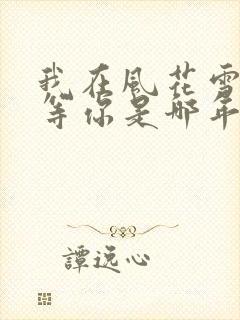 我在風花雪
等你是哪年
譚逸心